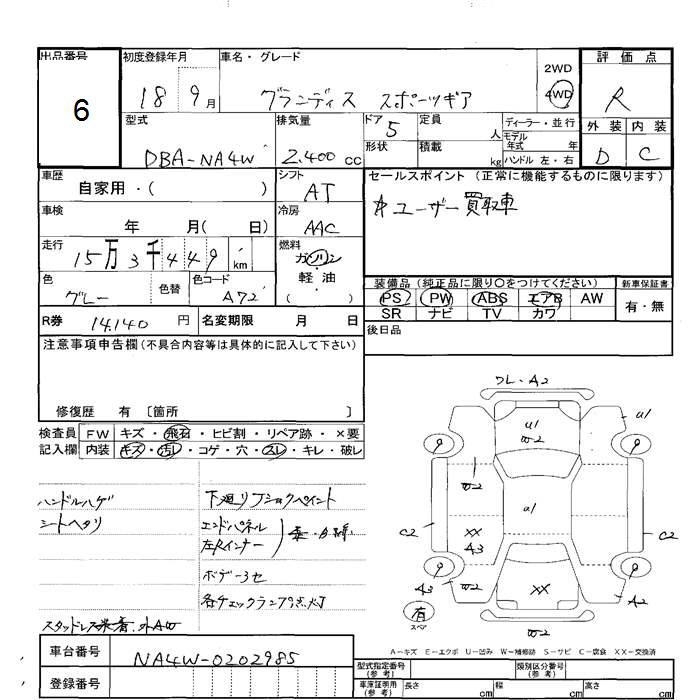 出品番号 6
初度登録年月 18 9月
車名・グレード グランディス スポーツギア
2WD
4WD
評価点 R
外装 D 内装 C
型式 DBA-NA4W
排気量 2.400 cc
ドア 5
形状
定員 人
積載 kg
ディーラー・並行
モデル年式 年
ハンドル 左・右
車歴 自家用・( )
シフト AT
セールスポイント (正常に機能するものに限ります)
ユーザー買取車
車検 年 月( 日)
冷房 AAC
走行 15万3千449 km
燃料 ガソリン・軽油 ( )
色 グレー 色替 色コード A72
装備品 (純正品に限り○をつけてください) 新車保証書
PS PW ABS エアB AW 有・無
SR ナビ TV カワ
R券 14.140 円 名変期限 月 日
後日品
注意事項申告欄 (不具合内容等は具体的に記入して下さい)
修復歴 有 〔箇所 〕
検査員 FW キズ・飛石・ヒビ割・リペア跡・×要
記入欄 内装 キズ・汚レ・コゲ・穴・スレ・キレ・破レ
ハンドルハゲ
シートヘタリ
下廻リブラックペイント
エンドパネル
左Rインナー
ボデー3セ
各チェックランプ点灯
スタッドレス 外AW
ワレ・A2
U1
W2
U1
W2
U1
C2
XX
A3
C2
A3
W2
XX
A2
有
スペア
W2
A-キズ E-エクボ U-凹み W-補修跡 S-サビ C-腐食 XX-交換済
車台番号 NA4W-0202985
登録番号
型式指定番号 (参考) 類別区分番号 (参考)
車庫証明用 (参考) 長さ cm 幅 cm 高さ cm